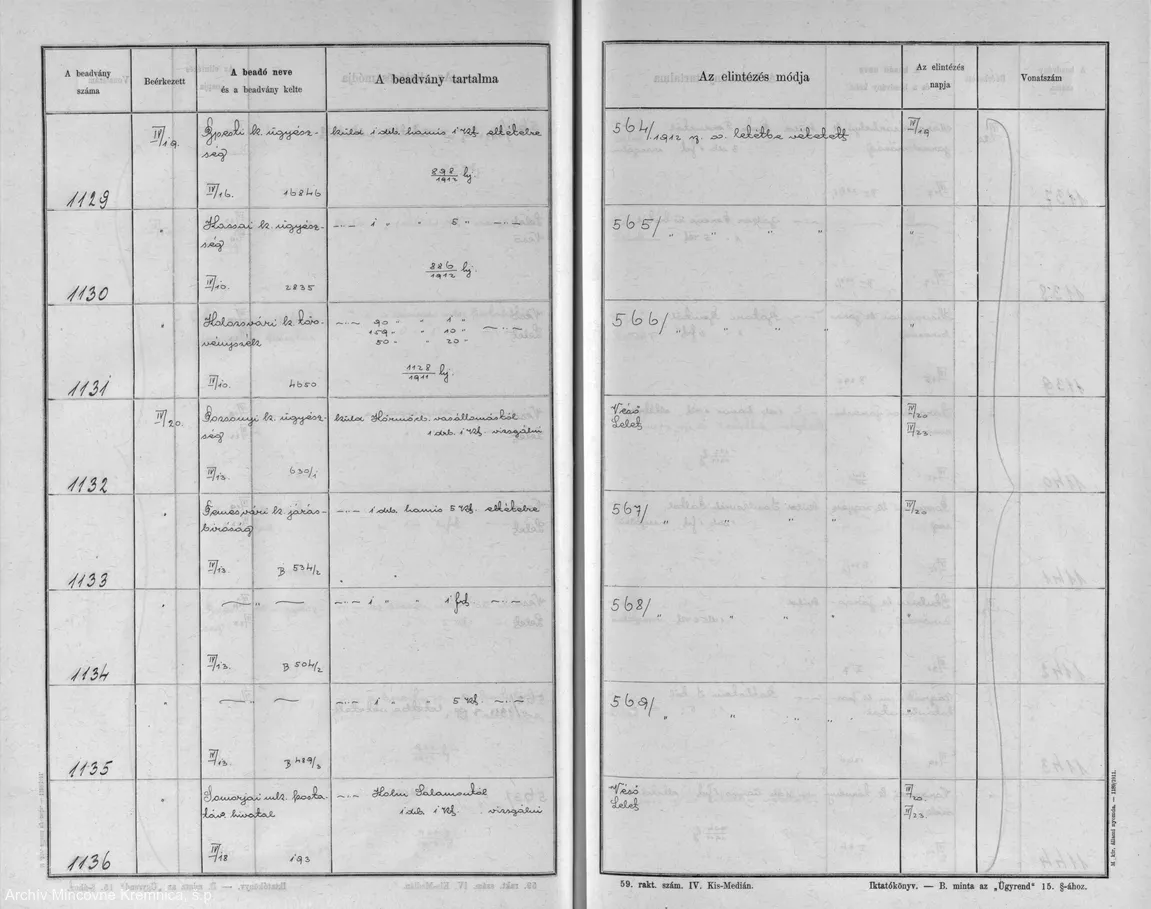 A beadvány száma
Beérkezett
A beadó neve és a beadvány kelte
A beadvány tartalma
Az elintézés módja
Az elintézés napja
Vonatszám
1129
IV/19.
Bpesti k. ügyész-
ség
IV/16. 16846
küld 1 drb. hamis 1 Kf. eltételre
898/1912 bj
564/1912 sz. a. letétbe vétetett
IV/19
1130
"
Kassai k. ügyész-
ség
IV/10. 2835
—"— 1 " " 5 " —"—
886/1912 bj.
565/ " " " "
"
1131
"
Kolozsvári k. tör-
vényszék
IV/10. 4650
—"— 90 " " 1 "
159 " " 10 " —"—
50 " " 20 "
1128/1911 bj.
566/ " " " "
"
1132
IV/20.
Pozsonyi k. ügyész-
ség
IV/13. 630/1
küld vasállomástól
1 drb. 1 Kf. vizsgálni
Véső
Lelet
IV/20
IV/23.
1133
"
Temesvári k. járás-
biróság
IV/13. B 534/2
—"— 1 drb. hamis 5 Kf. eltételre
567/ " " " "
IV/20
1134
"
— " —
IV/13. B 504/2
—"— 1 " " 1 frt. —"—
568/ " " " "
"
1135
"
— " —
IV/13. B 489/3
—"— 1 " " 5 Kf. —"—
569/ " " " "
"
1136
"
Somorjai mk. posta
táv. hivatal
IV/18 193
—"— Holm Salamontól
1 drb 1 Kf. vizsgálni
Véső
Lelet
IV/20.
IV/23.
59. rakt. szám. IV. Kis-Medián.
Iktatókönyv. — B. minta az „Ügyrend" 15. §-ához.
M. kir. állami nyomda. —
Archív Mincovne Kremnica, š.p.